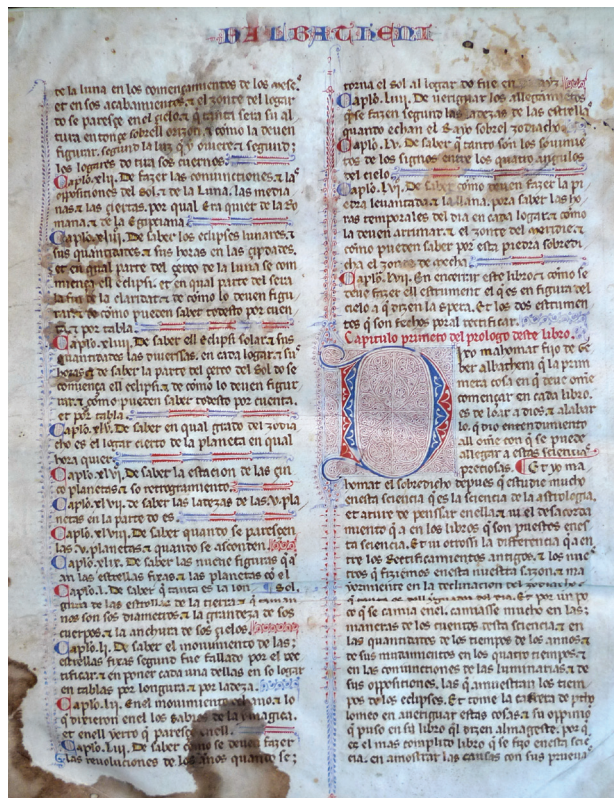 ALBATHENI
de la luna en los començamientos de los mese.
et en sos acabamientos. et el zonte del logar
do se paresçe en el çielo. et quanta sera su al
tura entonçe sobrell orizon. et cómo la deuen
figurar. segund la luz que ouiere et segund
los logares de tras sos cuernos.
Caplo. xlii. De fazer las coniunctiones. et las
oppositiones del Sol. et de la Luna. las media
nas. et las çiertas. por qual Era quier de la Ro
mana. et de la Egipçiana
Caplo. xliii. De saber los eclipses lunares. et
sus quantidades. et sus horas en las çipdades.
et en qual parte del çerco de la luna se com
miença ell eclipsi. et en qual parte del sera
la fin de la claridat. et de cómo lo deuen figu
rar. et de cómo pueden saber todesto por cuen
ta. et por tabla.
Caplo. xliiii. De saber ell eclipsi solar. et sus
quantidades las diuersas. en cada logar. et sus
horas. et de saber la parte del çerco del Sol do se
comiença ell eclipsi. et de cómo lo deuen figu
rar. et cómo pueden saber todesto por cuenta.
et por tabla.
Caplo. xlv. De saber en qual grado del zodia
cho es el logar çierto de la planeta en qual
hora quier
Caplo. xlvi. De saber la estaçion de las çin
co planetas. et so retrogramiento.
Caplo. xlvii. De saber las ladezas de las .v. pla
netas en la parte do es.
Caplo. xlviii. De saber quando se paresçen
las .v. planetas. et quando se asconden
Caplo. xlix. De saber las nueue figuras que
an las estrellas fixas. et las planetas con el
Caplo. l. De saber quanta es la lon Sol.
gura de las estrellas de la tierra. et quama
nos son sos diametros. et la grandeza de sos
cuerpos. et la anchura de sos çielos.
Caplo. li. De saber el mouimiento de las
estrellas fixas segund fue fallado por el rec
tificar. et en poner cada una dellas en so logar
en tablas por longura. et por ladeza.
Caplo. lii. En el mouimiento
que dixieron en el los sabios de la ymagica.
et en ell yerro que paresçe en ell.
Caplo. liii. De saber cómo se deuen fazer
las reuoluciones de los años quanto se
torna el sol al logar do fue en
Caplo. liiii. De ueriguar los allegamientos
que se fazen segund las ladezas de las estrellas
quanto echan el Rayo sobrel zodiacho.
Caplo. lv. De saber que tanto son los souimie
tos de los signos entre los quatro angulos
del çielo
Caplo. lvi. De saber cómo deuen fazer la pi
edra leuantada. et la llana. pora saber las ho
ras temporales del dia en cada logar. et cómo
la deuen arrimar. et el zonte del meridie. et
cómo pueden saber por esta piedra sobredi
cha el zonte de mecha
Caplo. lvii. En encerrar este libro. et cómo se
deue fazer ell estrument que es en figura del
çielo a que dizen la espera. Et los dos estrumen
tos que son fechos pora rectificar.
Capitulo primero del prologo deste libro.
Dixo mahomat fijo de Ge
ber albathem que la prim
mera cosa en que deue omne
començar en cada libro.
es de loar a dios. et alabar
lo. que dio entendimiento
all omne con que se puede
allegar a estas sciencias
preciosas. Et yo ma
homat el sobredicho depues que estudie mucho
en esta sciencia que es la sciencia de la astrologia.
et ature de penssar en ella. et ui el desacorda
miento que a en los libros que son puestos en es
ta sciencia. Et ui otrossi la differencia que a en
tre los Rectificamientos antigos. et los nues
tros que fiziemos en esta nuestra sazon. et ma
yormientre en la declination del zodiacho
Et por un po
co que se camia en el. camiasse mucho en las
maneras de los cuentos desta sciencia. et en
las quantidades de los tiempos de los annos. et
de sus mudamientos en los quatro tiempos. et
en las coniunctiones de las luminarias. et de
sus oppositiones. las que amuestran los tiem
pos de los eclipses. Et tome la carrera de ptho
lomeo en aueriguar estas cosas. et su oppinion
que puso en su libro quel dizen almageste. por que
es el mas complido libro que se fizo en esta scien
cia. en amostrar las causas con sus prueuas